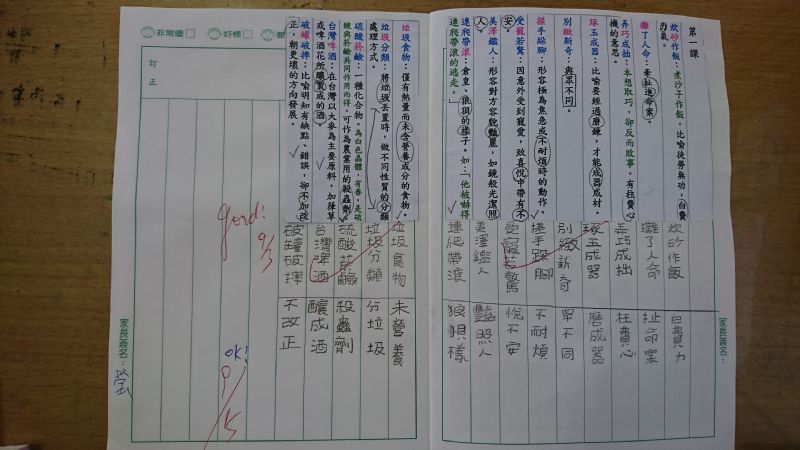 第一課
炊砂作飯：煮沙子作飯。比喻徒勞無功，白費力氣。
攤了人命：牽扯進命案。
弄巧成拙：本想取巧，卻反而敗事。有枉費心機的意思。
琢玉成器：比喻要經過磨鍊，才能成器成材。
別緻新奇：與眾不同。
搓手跺腳：形容極為焦急或不耐煩時的動作。
受寵若驚：因意外受到寵愛，致喜悅中帶有不安。
美澤鑑人：形容對方容貌豔麗，如鏡般光潔照人。
連爬帶滾：倉皇、狼狽的樣子。如：「他被赫得連爬帶滾的逃走。」
炊砂作飯
攤了人命
弄巧成拙
琢玉成器
別緻新奇
搓手跺腳
受寵若驚
美澤鑑人
連爬帶滾
白費力
扯命案
枉費心
磨成器
眾不同
不耐煩
悅不安
豔照人
狼狽樣
家長簽名：
非常優
好棒
訂正
垃圾食物：僅有熱量而未含營養成分的食物。
垃圾分類：將垃圾丟置時，做不同性質的分類處理方式。
硫酸菸鹼：一種化合物。為白色晶體，有毒，是硫酸與菸鹼共同作用而得。可作為農業用的殺蟲劑。
台灣啤酒：在台灣以大麥為主要原料，加葎草或啤酒花所釀製成的酒。
破罐破摔：比喻明知有缺點、錯誤，卻不加改正，朝更壞的方向發展。
垃圾食物
垃圾分類
硫酸菸鹼
台灣啤酒
破罐破摔
未營養
分垃圾
殺蟲劑
釀成酒
不改正
good!
9/5
OK!
9/5
家長簽名：